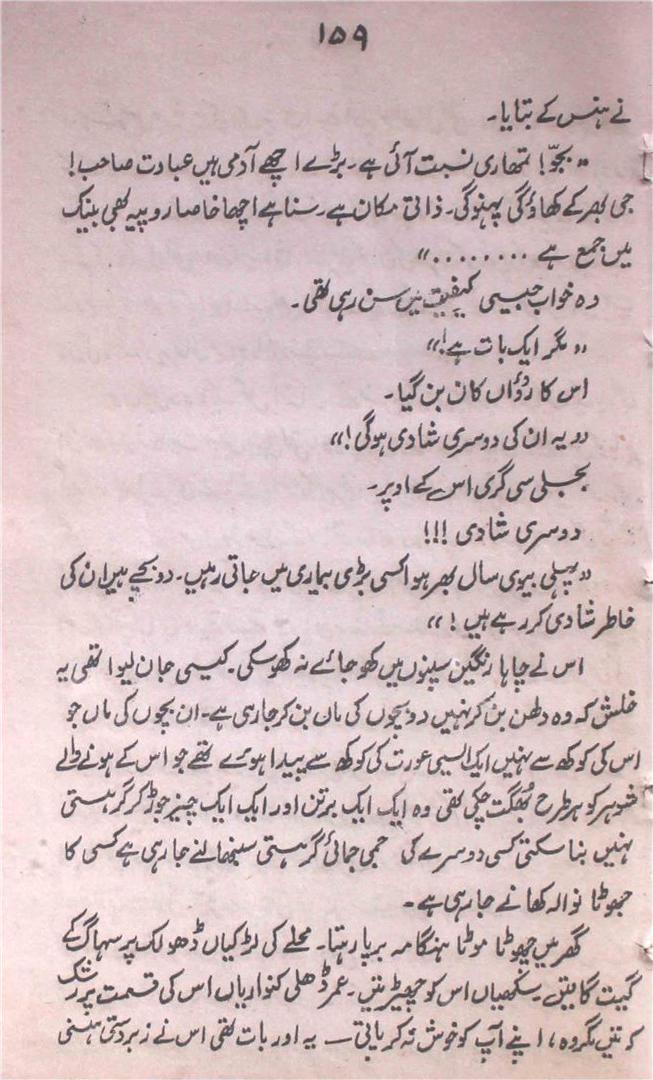 ۱۵۹
نے ہنس کے بتایا۔
"بجّو! تمھاری نسبت آئی ہے۔ بڑے اچھے آدمی ہیں عبادت صاحب!
جی بھر کے کھاؤ گی پہنو گی۔ ذاتی مکان ہے۔ سنا ہے اچھا خاصا روپیہ بھی بینک
میں جمع ہے ........"
وہ خواب جیسی کیفیت میں سن رہی تھی۔
"مگر ایک بات ہے!"
اس کا رُؤاں کان بن گیا۔
"یہ ان کی دوسری شادی ہوگی!"
بجلی سی گری اس کے اوپر۔
دوسری شادی !!!
"پہلی بیوی سال بھر ہوا کسی بڑی بیماری میں جاتی رہیں۔ دو بچے ہیں ان کی
خاطر شادی کر رہے ہیں !"
اس نے چاہا رنگین سپنوں میں کھو جائے نہ کھو سکی۔ کیسی جان لیوا تھی یہ
خلش کہ وہ دلھن بن کر نہیں دو بچوں کی ماں بن کر جا رہی ہے۔ ان بچوں کی ماں جو
اس کی کوکھ سے نہیں ایک ایسی عورت کی کوکھ سے پیدا ہوئے تھے جو اس کے ہونے والے
شوہر کو ہر طرح بُھگت چکی تھی وہ ایک ایک برتن اور ایک ایک چیز جوڑ کر گرہستی
نہیں بنا سکتی کسی دوسرے کی جمی جمائی گرہستی سنبھالنے جا رہی ہے کسی کا
جھوٹا نوالہ کھانے جا رہی ہے۔
گھر میں چھوٹا موٹا ہنگامہ برپا رہتا۔ محلے کی لڑکیاں ڈھولک پر سہاگ کے
گیت گاتیں۔ سکھیاں اس کو چھیڑتیں۔ عمر ڈھلی کنواریاں اس کی قسمت پر رشک
کرتیں مگر وہ، اپنے آپ کو خوش نہ کر پاتی — یہ اور بات تھی اس نے زبردستی ہنسی